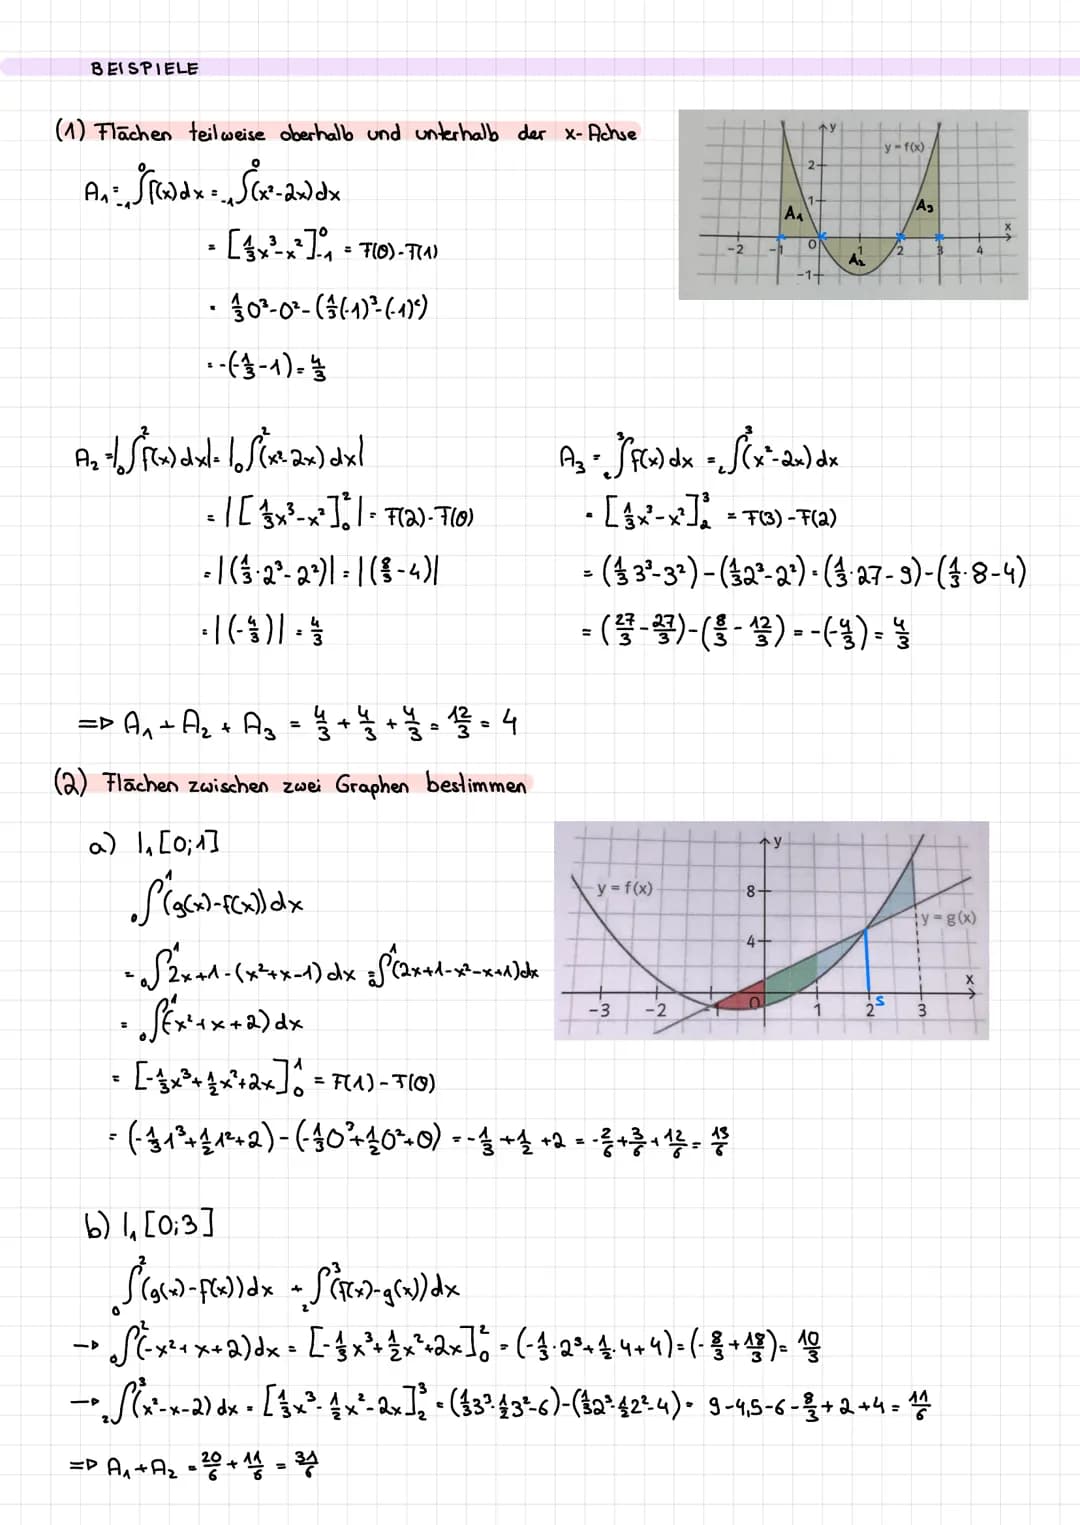 BEISPIELE
(1) Flächen teilweise oberhalb und unterhalb der x-Achse
A₁ = ₋₁∫⁰ f(x) dx = ₋₁∫⁰ (x²-2x) dx
= [⅓x³-x²]⁰₋₁ = F(0)-F(1)
= ⅓0³-0²-(⅓(-1)³-(-1)²)
= -(-⅓-1) = 4/3
y
y = f(x)
2
1
A₁
A₃
x
-2 -1 0 1 2 3 4
A₂
-1
A₂ = |₀∫² f(x) dx| = |₀∫² (x²-2x) dx|
= |[⅓x³-x²]²₀| = F(2)-F(0)
= |(⅓·2³-2²)| = |(8/3-4)|
= |(-4/3)| = 4/3
A₃ = ₂∫³ f(x) dx = ₂∫³ (x²-2x) dx
= [⅓x³-x²]³₂ = F(3)-F(2)
= (⅓3³-3²)-(⅓2³-2²) = (⅓·27-9)-(⅓·8-4)
= (27/3-27/3)-(8/3-12/3) = -(-4/3) = 4/3
=> A₁ + A₂ + A₃ = 4/3 + 4/3 + 4/3 = 12/3 = 4
(2) Flächen zwischen zwei Graphen bestimmen
a) I₁ [0;1]
₀∫¹ (g(x)-f(x)) dx
= ₀∫¹ 2x+1-(x²+x-1) dx = ₀∫¹ (2x+1-x²-x+1) dx
= ₀∫¹ (-x²+x+2) dx
= [-⅓x³+½x²+2x]¹₀ = F(1)-F(0)
= (-⅓1³+½1²+2)-(-⅓0³+½0²+0) = -⅓+½+2 = -2/6+3/6+12/6 = 13/6
y
y = f(x)
8
y = g(x)
4
x
-3 -2 -1 0 1 2 S 3
b) I₁ [0;3]
₀∫² (g(x)-f(x)) dx + ₂∫³ (f(x)-g(x)) dx
→ ₀∫² (-x²+x+2) dx = [-⅓x³+½x²+2x]²₀ = (-⅓·2³+½·4+4) = (-8/3+18/3) = 10/3
→ ₂∫³ (x²-x-2) dx = [⅓x³-½x²-2x]³₂ = (⅓3³-½3²-6)-(⅓2³-½2²-4) = 9-4,5-6-8/3+2+4 = 11/6
=> A₁+A₂ = 20/6 + 11/6 = 31/6